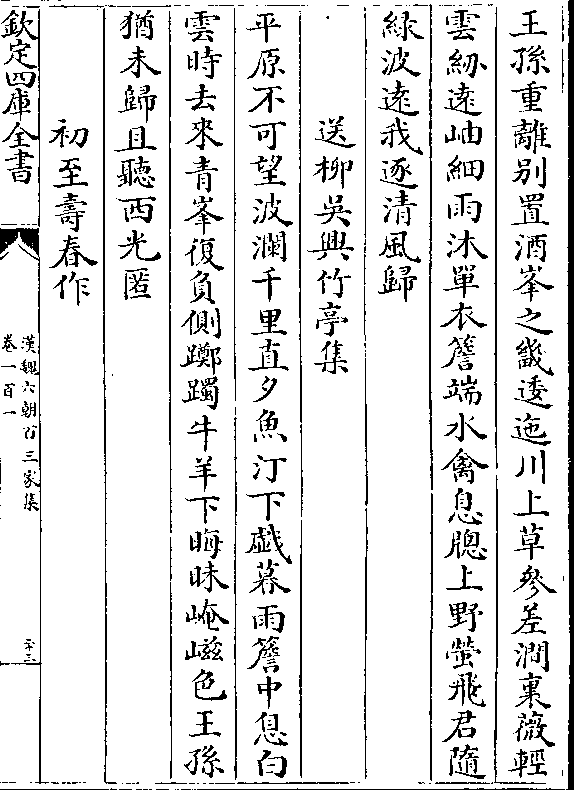 王孫重離别置酒峯之畿逶迤川上草參差澗裏薇輕
雲紉遠岫細雨沐單衣簷端水禽息牕上野螢飛君隨
緑波遠我逐清風歸
送柳吳興竹亭集
平原不可望波瀾千里直夕魚汀下戯暮雨簷中息白
雲時去來青峯復負側躑躅牛羊下晦昧崦嵫色王孫
猶未歸且聽西光匿
初至壽春作
欽定四庫全書
漢魏六朝百三家集
卷一百一
二十三